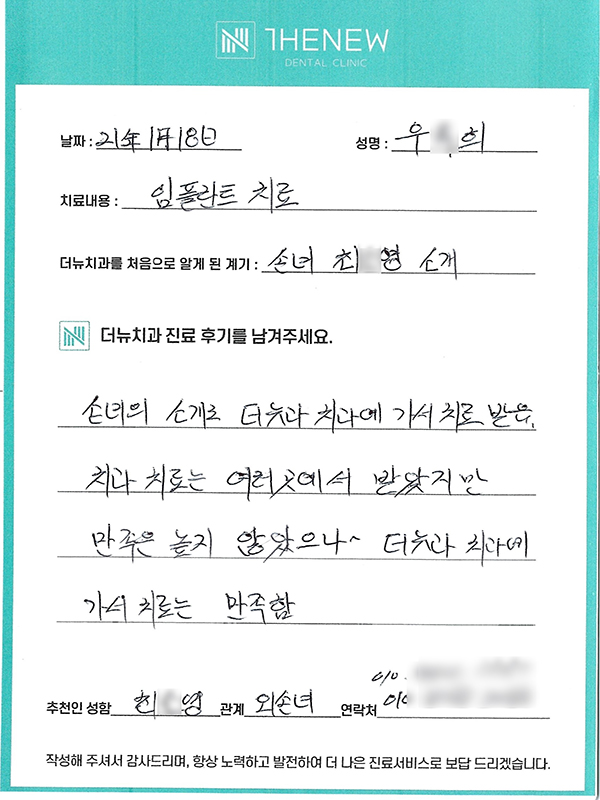 THENEW
DENTAL CLINIC
날짜 : 21年 1月 18日 성명 : 우 희
치료내용 : 임플란트 치료
더뉴치과를 처음으로 알게 된 계기 : 손녀 최 영 소개
더뉴치과 진료 후기를 남겨주세요.
손녀의 소개로 더뉴과 치과에 가서 치료 받은.
치과 치료는 여러곳에서 받았지만
만족은 높지 않았으나~ 더뉴과 치과에
가서 치료는 만족함
010.
추천인 성함 최 영 관계 외손녀 연락처 010
작성해 주셔서 감사드리며, 항상 노력하고 발전하여 더 나은 진료서비스로 보답 드리겠습니다.